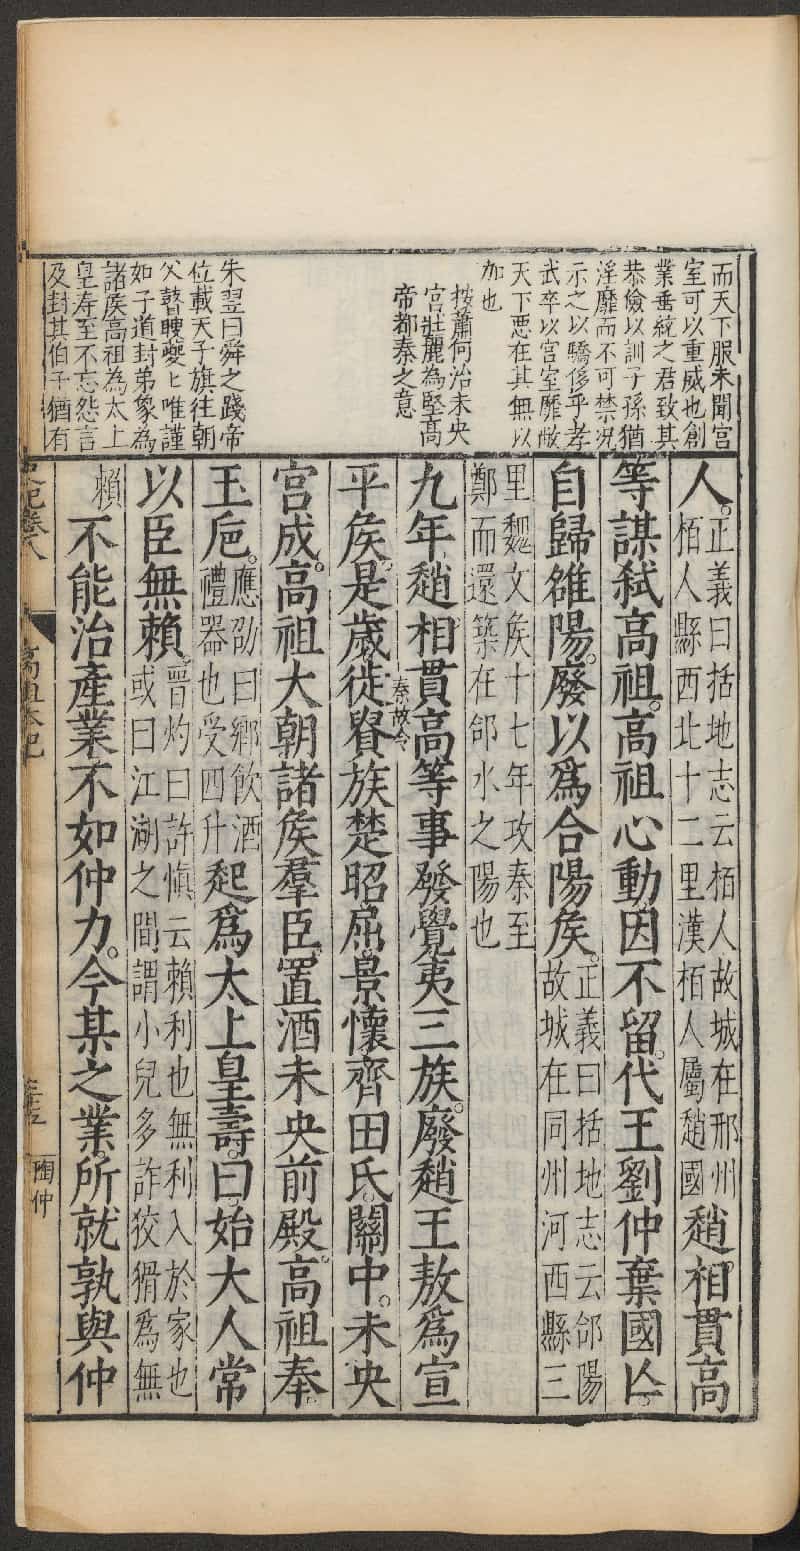 而天下服未聞宮
室可以重威也創
業垂統之君致其
恭儉以訓子孫猶
淫靡而不可禁況
示之以驕侈乎孝
武卒以宮室靡敝
天下惡在其無以
加也
按蕭何治未央
宮壯麗為堅高
帝都秦之意
朱翌曰舜之踐帝
位載天子旗往朝
父瞽瞍夔〻唯謹
如子道封弟象為
諸矦高祖為太上
皇寿至不忘怨言
及封其伯子猶有
人。正義曰括地志云栢人故城在邢州
栢人縣西北十二里漢栢人屬趙國趙相貫高
等謀弑高祖。高祖心動因不留。代王劉仲棄國亾。
自歸雒陽。廢以爲合陽矦。正義曰括地志云郃陽
故城在同州河西縣三
里魏文矦十七年攻秦至
鄭而還築在郃水之陽也
九年。趙相貫高等事發覺夷三族。廢趙王敖爲宣
秦故令
平矦。是歲徙貴族楚昭屈景懷齊田氏。關中。未央
宮成。高祖大朝諸矦羣臣。置酒未央前殿。高祖奉
玉巵。應劭曰鄉飲酒
禮器也受四升起爲太上皇壽。曰。始大人常
以臣無賴。晉灼曰許愼云賴利也無利入於家也
或曰江湖之間謂小兒多詐狡猾爲無
賴不能治產業不如仲力。今某之業。所就孰與仲
史記卷八
高祖本紀
陶仲